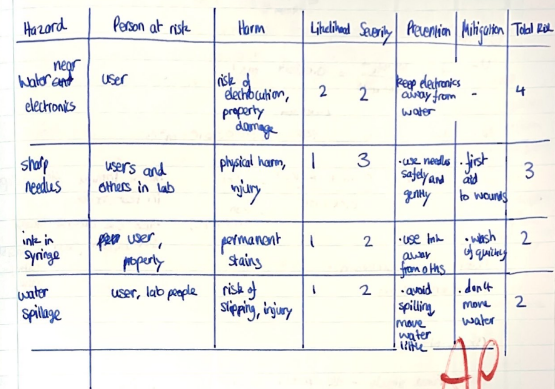 Hazard Person at risk Harm Likelihood Severity Prevention Mitigation Total Risk
near
water and electronics
user
risk of
electrocution,
property
damage
2 2
keep electronics
away from
water
-
4
sharp
needles
users and
others in lab
physical harm,
injury
1 3
• use needles
safely and
gently
• first
aid
to wounds
3
ink in
syringe
user,
property
permanent
stains
1 2
• use ink
away
from
• wash
quickly
2
water
spillage
user, lab people
risk of
slipping, injury
1 2
• avoid
spilling,
move
water
little
• don't
move
water
2